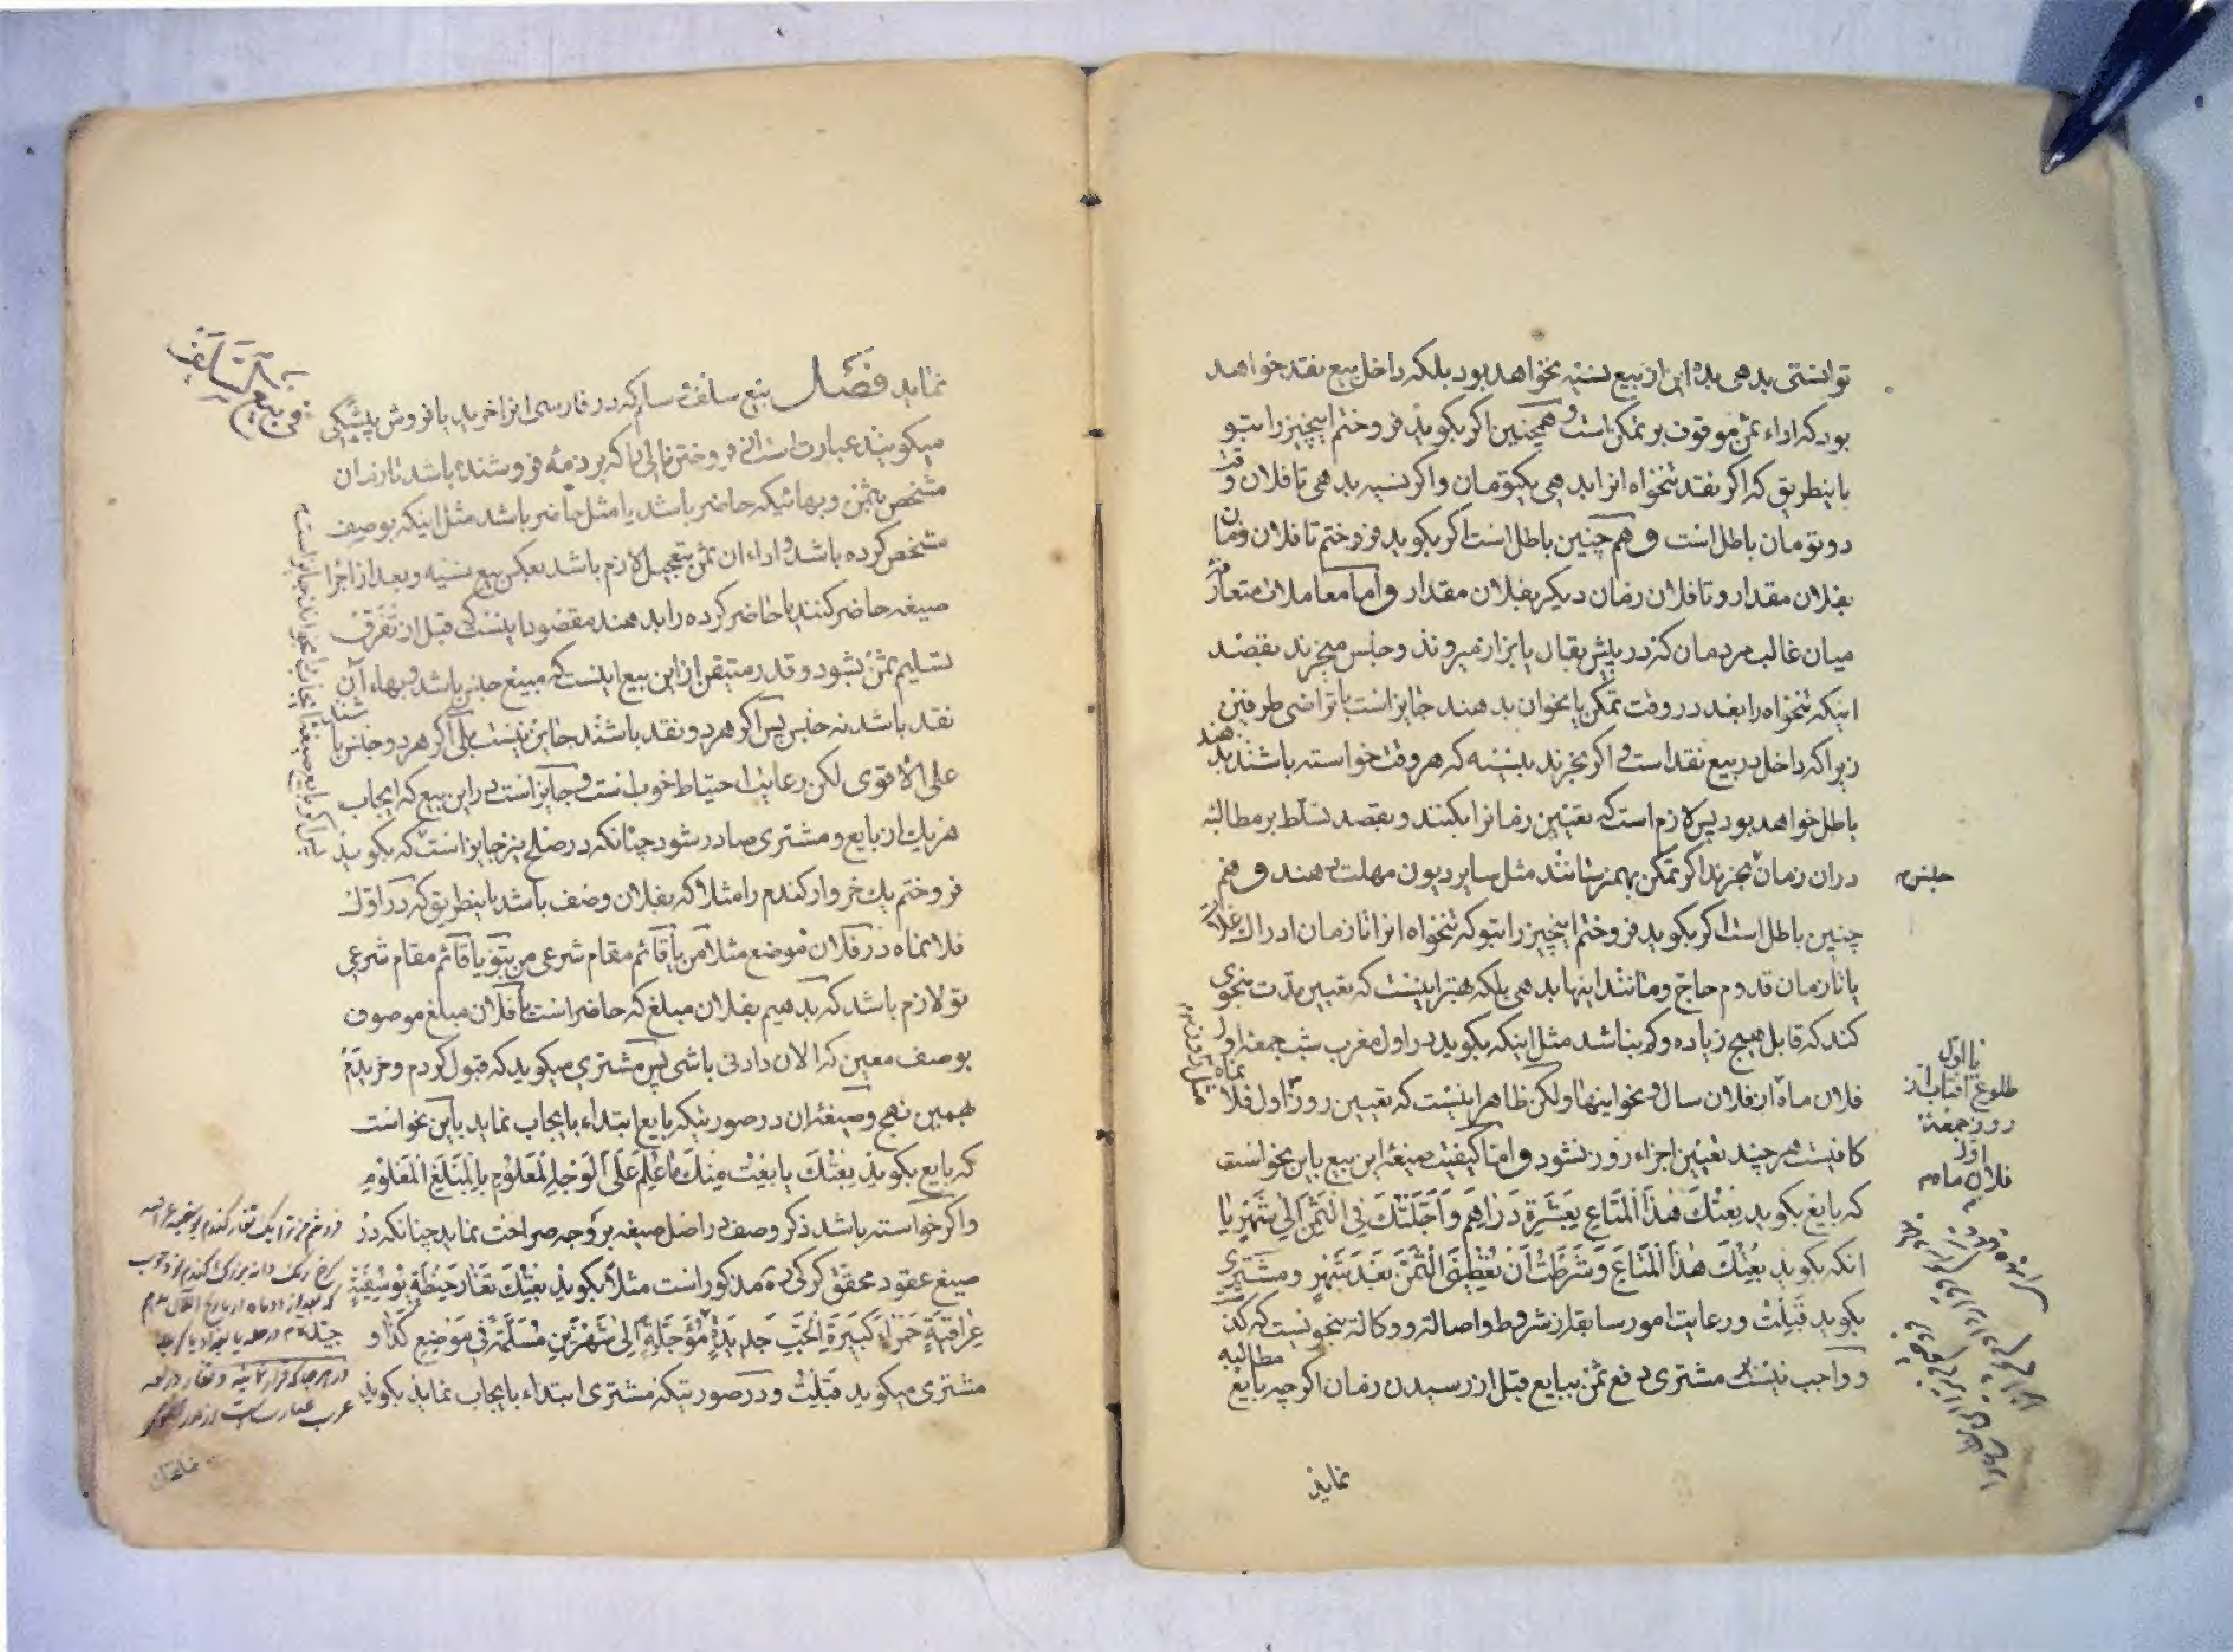 توانستی بدهی بده این از بیع نسیه نخواهد بود بلکه داخل بیع نقد خواهد
بود که اداء ثمن موقوف بر تمکن است و همچنین اکر بکوید فروختم اینچیز را بتو
باینطریق که اکر نقد تنخواه انرا بدهی بیکتومان و اکر نسیه بدهی تا فلان وقت
دو تومان باطل است و هم چنین باطل است اکر بکوید فروختم تا فلان زمان
بفلان مقدار و تا فلان زمان دیکر بفلان مقدار و اما معاملات متعارفه
میان غالب مردمان که در پیش بقال یا بزاز میروند و جنس میخرند بقصد
اینکه تنخواه را بعد در وقت تمکن یا نحو ان بدهند جایز است با تراضی طرفین
زیرا که داخل در بیع نقد است و اکر بخرند بنسیه که هر وقت خواسته باشند بدهند
باطل خواهد بود پس لازم است که تعیین زمانرا بکنند و بقصد تسلط بر مطالبه
دران زمان بخرند اکر تمکن بهم نرسانند مثل سایر دیون مهلت دهند و هم
چنین باطل است اکر بکوید فروختم اینچیز را بتو که تنخواه انرا تا زمان ادراک غلات
یا تا زمان قدوم حاج و مانند اینها بدهی بلکه بهتر اینست که تعیین مدت بنحوی
کند که قابل هیچ زیاده و کم نباشد مثل اینکه بکوید در اول مغرب شب جمعه اول
فلان ماه از فلان سال و نحو اینها ولکن ظاهر اینست که تعیین روز اول فلان ماه
کافیست هر چند تعیین اجزاء روز نشود و اما کیفیت صیغه این بیع باین نحو است
که بایع بکوید بِعْتُکَ هٰذَا الْمَتَاعَ بِعَشَرَةِ دَرَاهِمَ وَ اَجَّلْتُکَ فِی الثَّمَنِ اِلٰی شَهْرٍ یا
انکه بکوید بِعْتُکَ هٰذَا الْمَتَاعَ وَ شَرَطْتُ اَنْ تُعْطِیَنِی الثَّمَنَ بَعْدَ شَهْرٍ و مشتری
بکوید قَبِلْتُ و رعایت امور سابقه از شروط و اصالة و وکالة بنحویست که کذشت
و واجب نیست بر مشتری دفع ثمن ببایع قبل از رسیدن زمان اکر چه بایع مطالبه
نماید
جنس
تا اول
طلوع افتاب از
روز جمعه
اول
فلان ماه
فی بیع السلف
نماید فصل بیع سلف و سلم که در فارسی انرا خرید یا فروش پیشکی
میکویند عبارت است از فروختن مالی را که بر ذمه فروشنده باشد تا زمان
مشخص بثمن و بهائیکه حاضر باشد یا مثل حاضر باشد مثل اینکه بوصف
مشخص کرده باشد و اداء ان ثمن بتعجیل لازم باشد بعکس بیع نسیه و بعد از اجرا
صیغه حاضر کنند یا حاضر کرده را بدهند مقصود اینست که قبل از تفرق
تسلیم ثمن بشود و قدر متیقن از این بیع اینست که مبیع جنس باشد و بهاء آن
نقد باشد نه جنس پس اکر هر دو نقد باشند جایز نیست بلی اکر هر دو جنس باشند
علی الاقوی لکن رعایت احتیاط خوب است و جایز است در این بیع که ایجاب
هر یک از بایع و مشتری صادر شود چنانکه در صلح نیز جایز است که بکوید
فروختم یک خروار کندم را مثلا که بفلان وصف باشد باینطریق که در اول
فلانماه در فلان موضع مثلا من یا قائم مقام شرعی من بتو یا قائم مقام شرعی
تو لازم باشد که بدهیم بفلان مبلغ که حاضر است یا فلان مبلغ موصوف
بوصف معین که الان دادنی باشی پس مشتری میکوید که قبول کردم و خریدم
بهمین نهج و صیغه ان در صورتیکه بایع ابتداء بایجاب نماید باین نحو است
که بایع بکوید بِعْتُکَ یا بِعْتُ مِنْکَ مَا عُلِمَ عَلَی الْوَجْهِ الْمَعْلُومِ بِالْمَبْلَغِ الْمَعْلُومِ
و اکر خواسته باشد ذکر وصف در اصل صیغه بر وجه صراحت نماید چنانکه در
صیغ عقود محقق کرکی ره مذکور است مثلا بکوید بِعْتُکَ تَغَارَ حِنْطَةٍ یُوسُفِیَّةٍ
عِرَاقِیَّةٍ حَمْرَاءَ کَبِیرَةِ الْحَبِّ جَدِیدَةٍ مُؤَجَّلَةٍ اِلٰی شَهْرَیْنِ مُسَلَّمَةً فِی مَوْضِعِ کَذَا و
مشتری میکوید قَبِلْتُ و در صورتیکه مشتری ابتداء بایجاب نماید بکوید